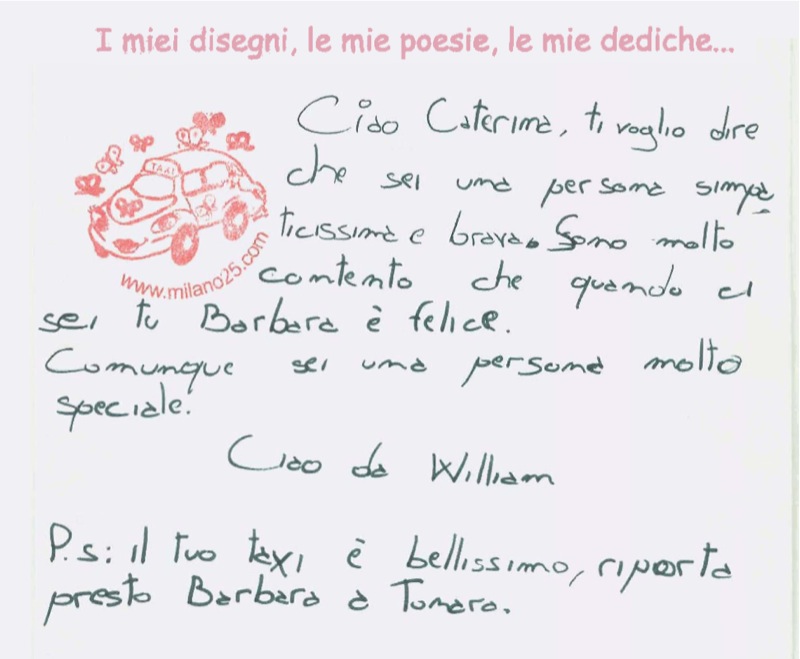 I miei disegni, le mie poesie, le mie dediche...
Ciao Caterina, ti voglio dire
che sei una persona simpa
ticissima e brava. Sono molto
contento che quando ci
sei tu Barbara è felice.
Comunque sei una persona molto
speciale.
Ciao da William
P.s: il tuo taxi è bellissimo, riporta
presto Barbara a Tumara.
TAXI
www.milano25.com